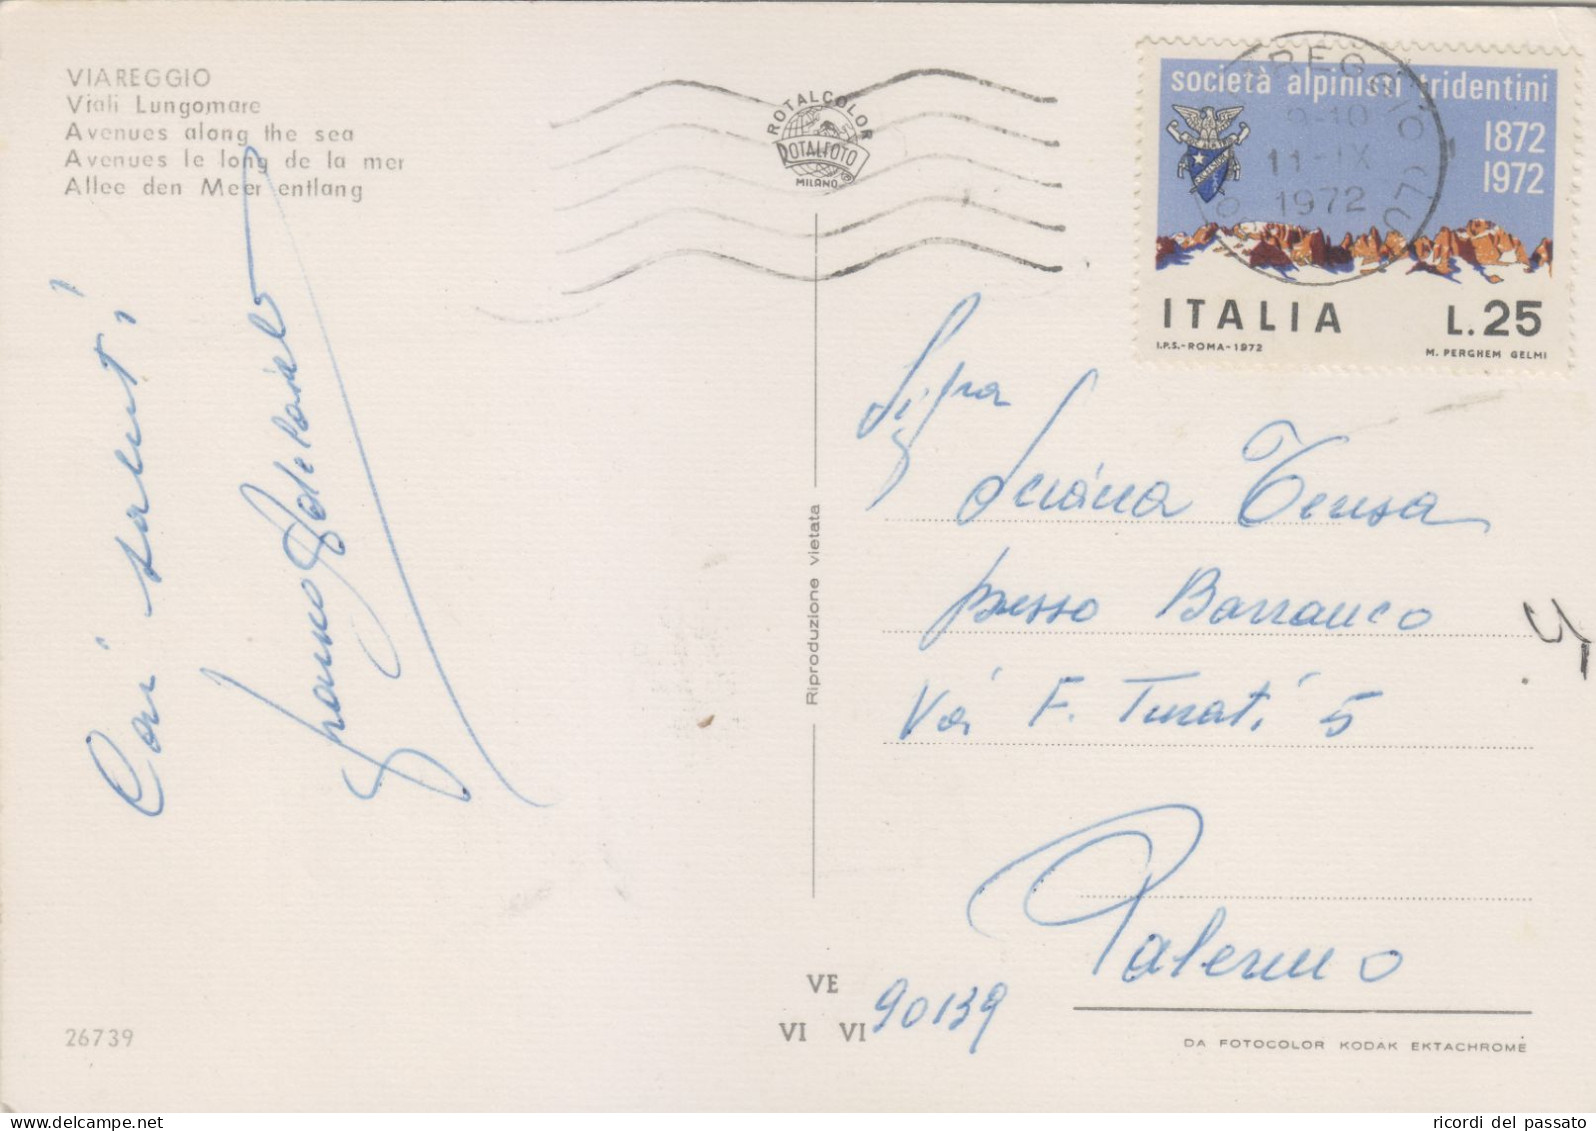 VIAREGGIO
Viali Lungomare
Avenues along the sea
Avenues le long de la mer
Allee den Meer entlang
ROTALCOLOR
ROTALFOTO
MILANO
società alpinisti tridentini
1872
1972
ITALIA L.25
I.P.S.-ROMA-1972 M. PERGHEM GELMI
9-10
11-IX
1972
Cari saluti
Sig.ra
Luciana Teresa
presso Barranco
Via F. Turati 5
Palermo
90139
Riproduzione vietata
VE
VI VI
26739
DA FOTOCOLOR KODAK EKTACHROME
ricordi del passato